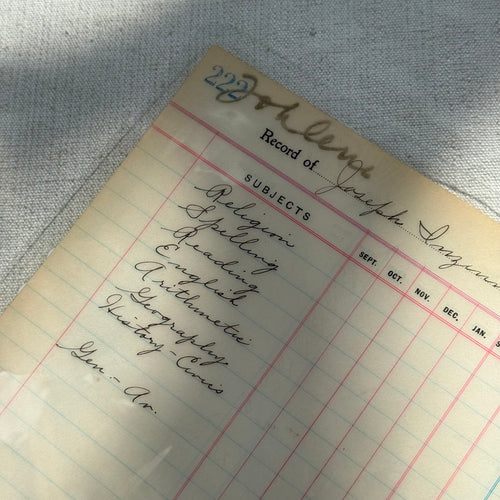 222
Record of Joseph
SUBJECTS SEPT. OCT. NOV. DEC. JAN.
Religion
Spelling
Reading
English
Arithmetic
Geography
History - Civics
Gen. - Av.